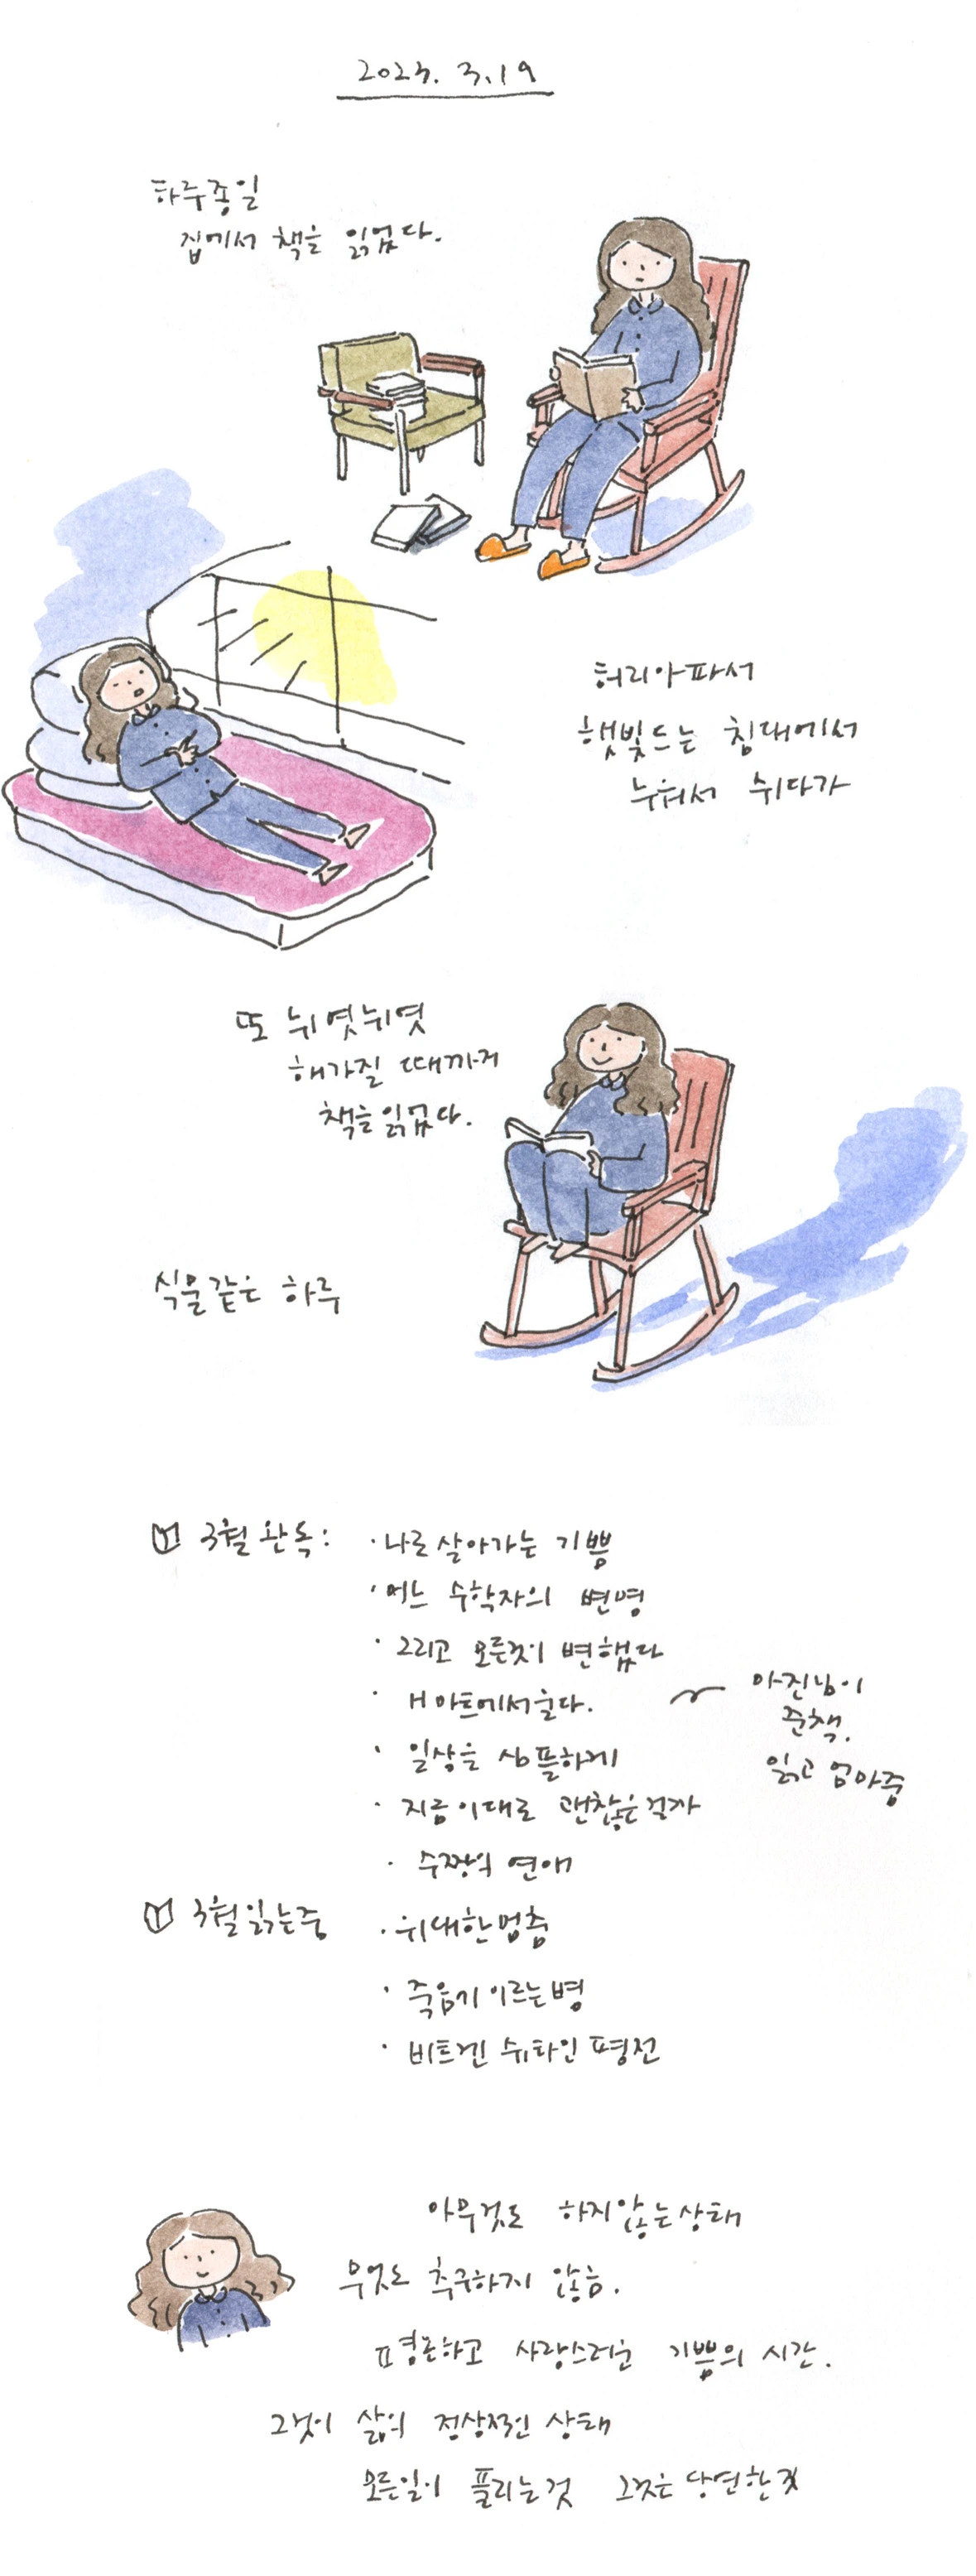 2023. 3.19
하루종일
집에서 책을 읽었다.
허리아파서
햇빛드는 침대에서
누워서 쉬다가
또 뉘엿뉘엿
해가질 때까지
책을 읽었다.
식물같은 하루
3월 완독:
· 나로 살아가는 기쁨
· 어느 수학자의 변명
· 그리고 모든것이 변했다
· H마트에서 울다.
아진님이
준책.
읽고 엄마줌
· 일상을 심플하게
· 지금 이대로 괜찮은걸까
· 수짱의 연애
3월 읽는중
· 위대한 멈춤
· 죽음에 이르는 병
· 비트겐 슈타인 평전
아무것도 하지않는 상태
무엇도 추구하지 않음.
평온하고 사랑스러운 기쁨의 시간.
그것이 삶의 정상적인 상태
모든일이 풀리는것 그것은 당연한 것